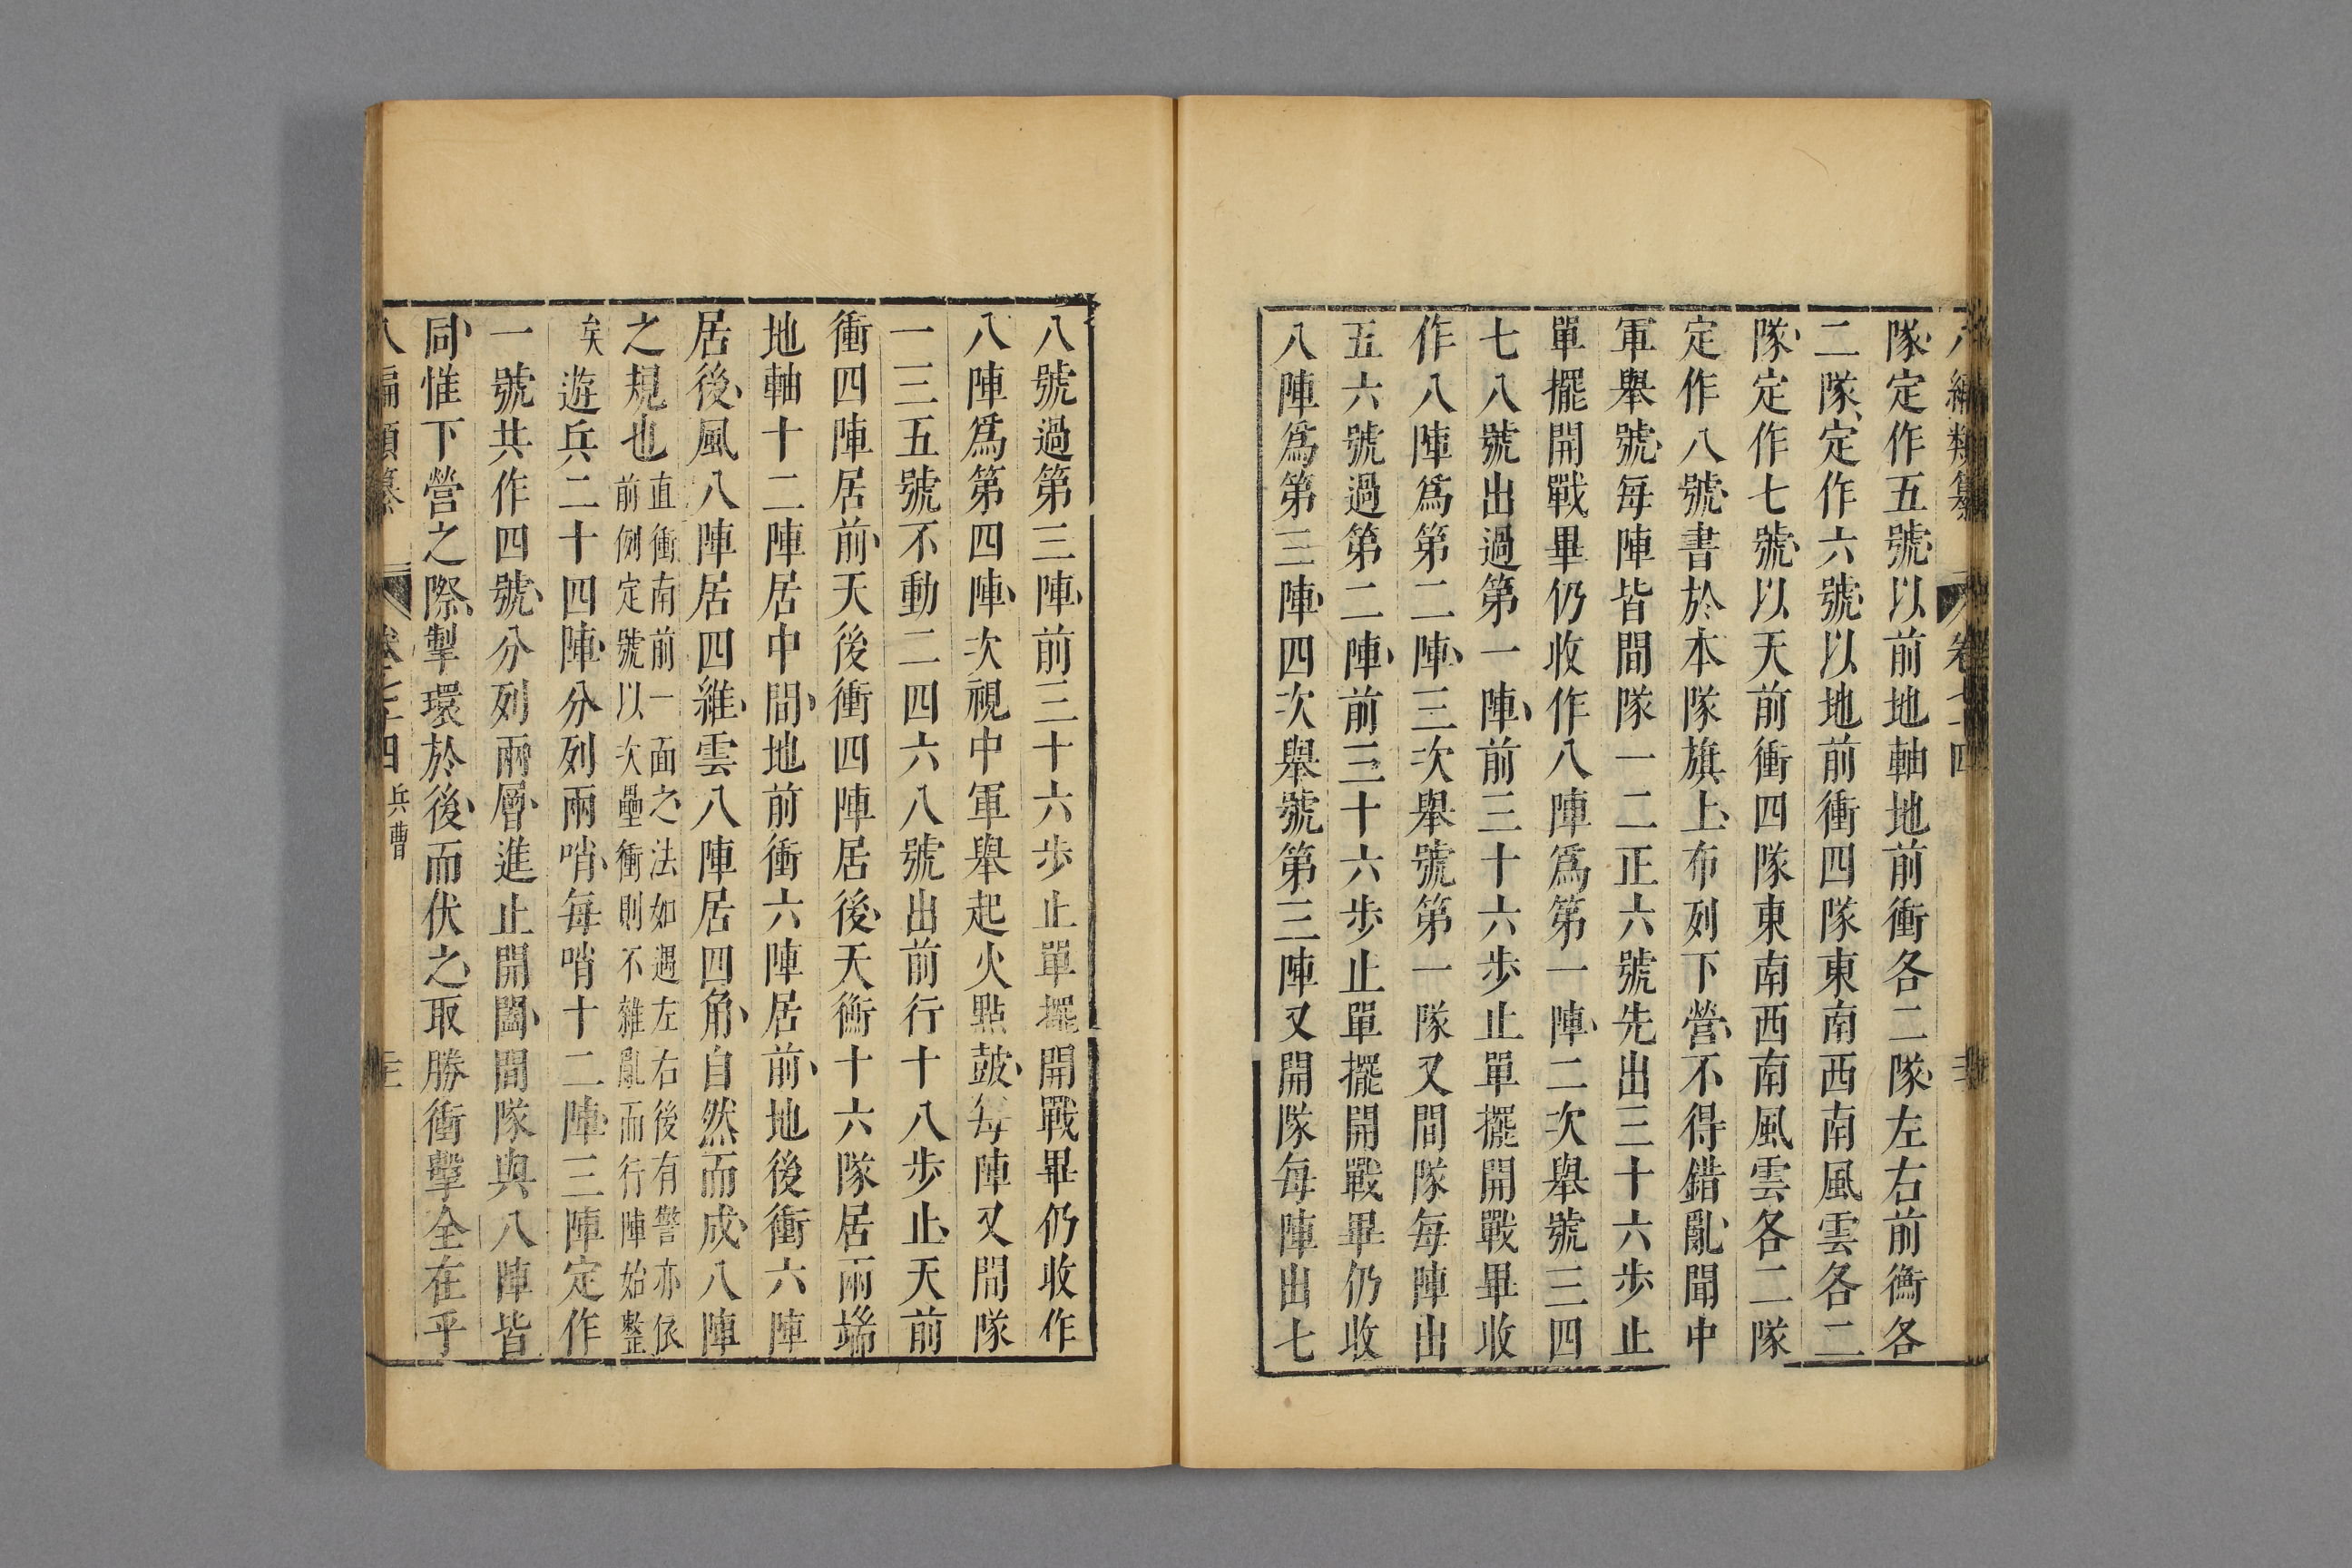 八編類纂 卷七十四
隊定作五號以前地軸地前衝各二隊左右前衡各
二隊定作六號以地前衝四隊東南西南風雲各二
隊定作七號以天前衝四隊東南西南風雲各二隊
定作八號書於本隊旗上布列下營不得錯亂聞中
軍舉號每陣皆間隊一二正六號先出三十六步止
單擺開戰畢仍收作八陣爲第一陣二次舉號三四
七八號出過第一陣前三十六步止單擺開戰畢收
作八陣爲第二陣三次舉號第一隊又間隊每陣出
五六號過第二陣前三十六步止單擺開戰畢仍收
八陣爲第三陣四次舉號第三陣又開隊每陣出七
八號過第三陣前三十六步止單擺開戰畢仍收作
八陣爲第四陣次視中軍舉起火點鼓每陣又間隊
一三五號不動二四六八號出前行十八步止天前
衝四陣居前天後衝四陣居後天衡十六隊居兩端
地軸十二陣居中間地前衝六陣居前地後衝六陣
居後風八陣居四維雲八陣居四角自然而成八陣
之規也直衝南前一面之法如遇左右後有警亦依
前例定號以次壘衝則不雜亂而行陣始整
矣遊兵二十四陣分列兩哨每哨十二陣三陣定作
一號共作四號分列兩層進止開闔間隊與八陣皆
同惟下營之際掣環於後而伏之取勝衝擊全在乎
八編類纂 卷七十四 兵曹